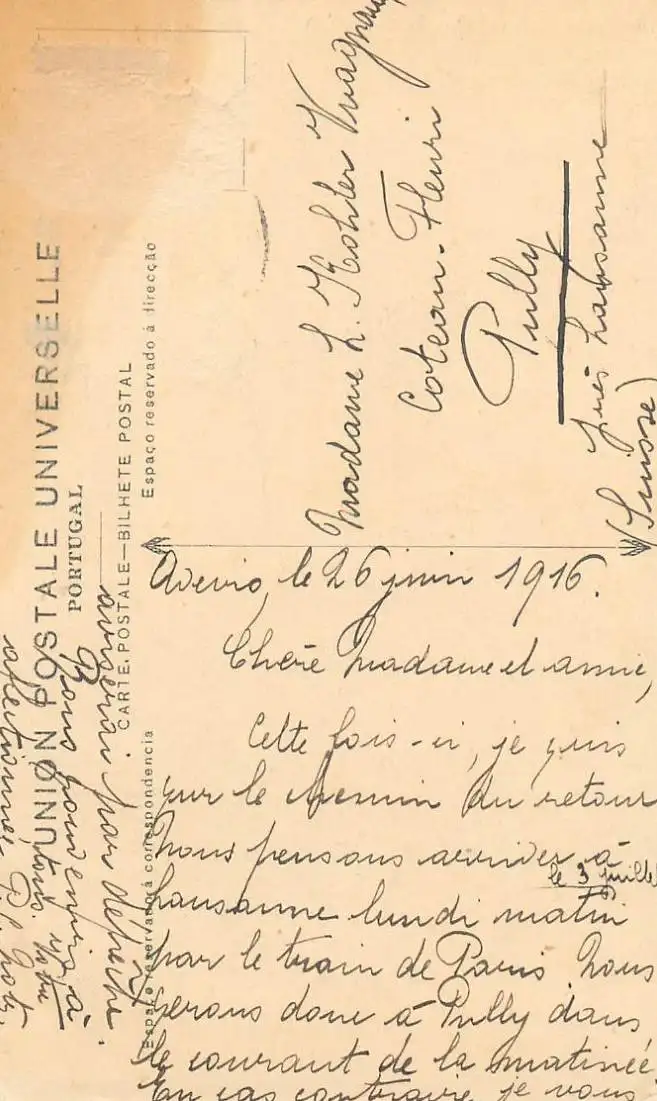 UNION POSTALE UNIVERSELLE
PORTUGAL
CARTE POSTALE—BILHETE POSTAL
Espaço reservado á correspondencia
Espaço reservado á direcção
Madame L. Kohler
Coteau-Fleuri
Pully
près Lausanne
(Suisse)
le 26 juin 1916.
Chère Madame et amie,
Cette fois-ci, je suis
sur le chemin du retour
Nous pensons arriver à
Lausanne lundi matin
le 3 juillet
par le train de Paris Nous
serons donc à Pully dans
le courant de la matinée
En cas contraire, je vous
par dépêche.
Bons souvenirs à
tous. Votre
affectionnée